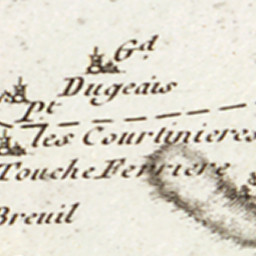 Gd
Dugeais
Pt
les Courtinieres
Touche Ferriere
Breuil